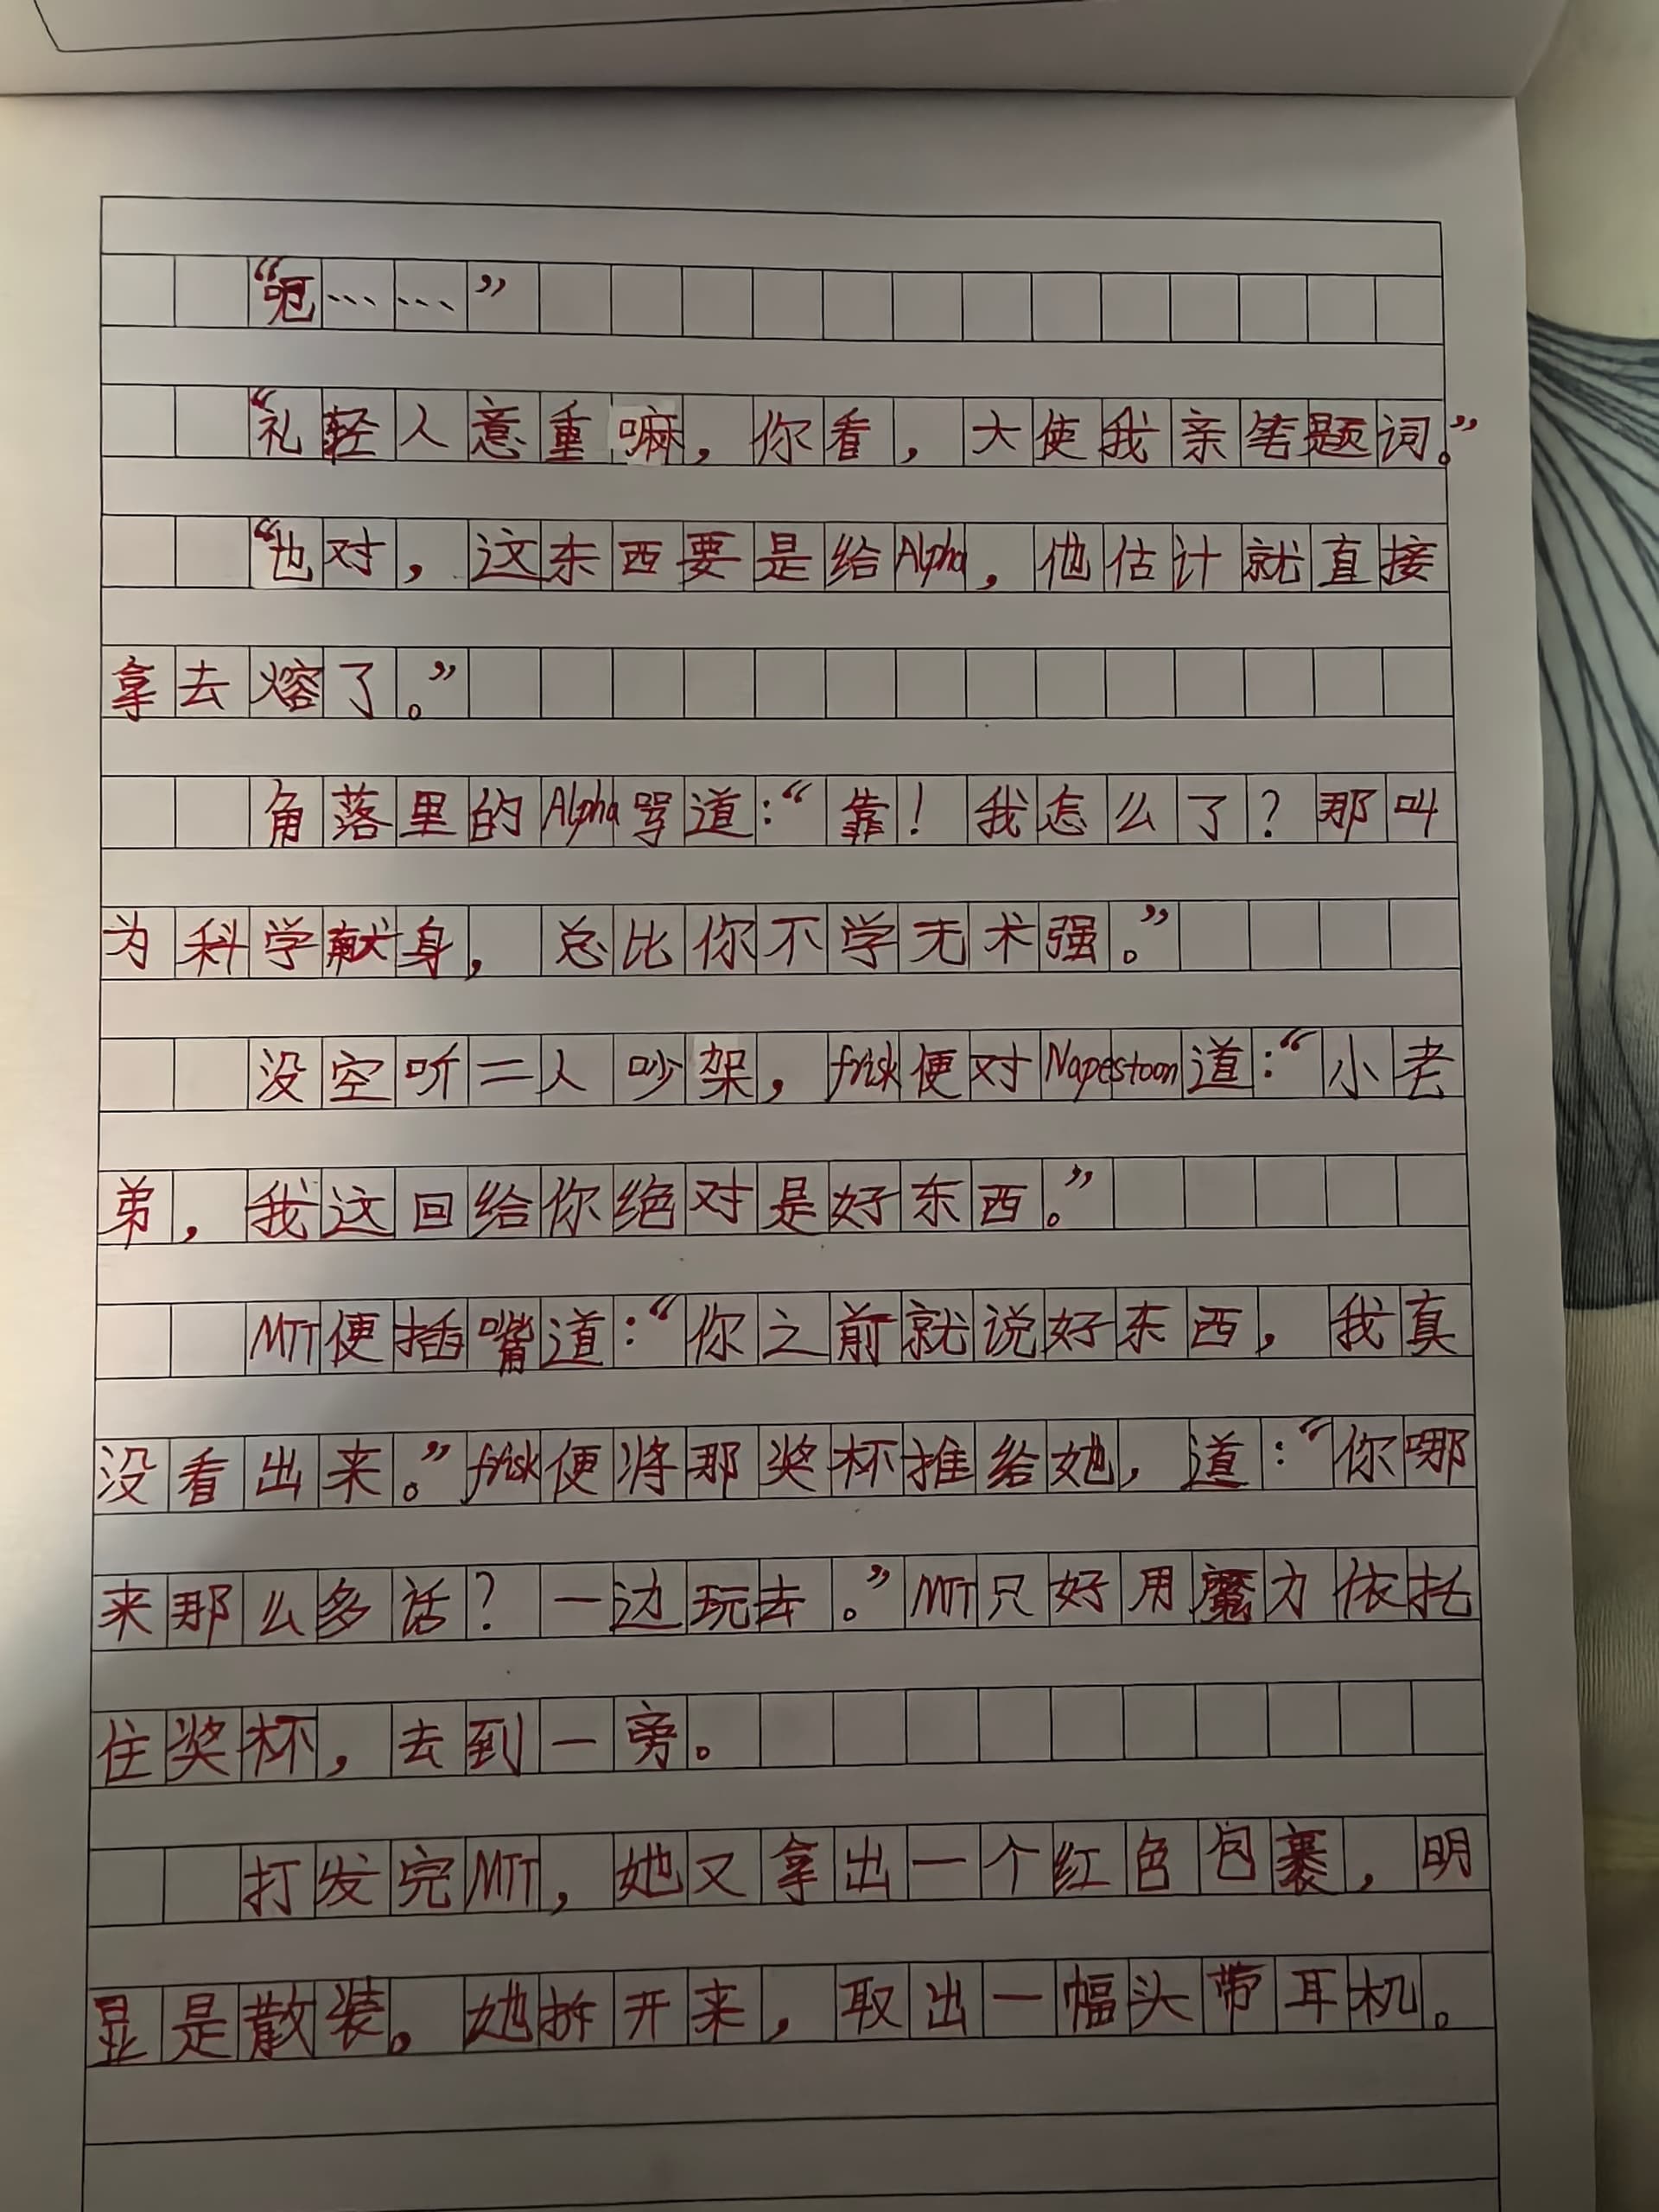 “呃……”
“礼轻人意重嘛，你看，大使我亲笔题词。”
“也对，这东西要是给Alpha，他估计就直接
拿去熔了。”
角落里的Alpha骂道：“靠！我怎么了？那叫
为科学献身，总比你不学无术强。”
没空听二人吵架，frisk便对Napestoon道：“小老
弟，我这回给你绝对是好东西。”
MTT便插嘴道：“你之前就说好东西，我真
没看出来。”frisk便将那奖杯推给她，道：“你哪
来那么多话？一边玩去。”MTT只好用魔力依托
住奖杯，去到一旁。
打发完MTT，她又拿出一个红色包裹，明
显是散装。她拆开来，取出一幅头带耳机。